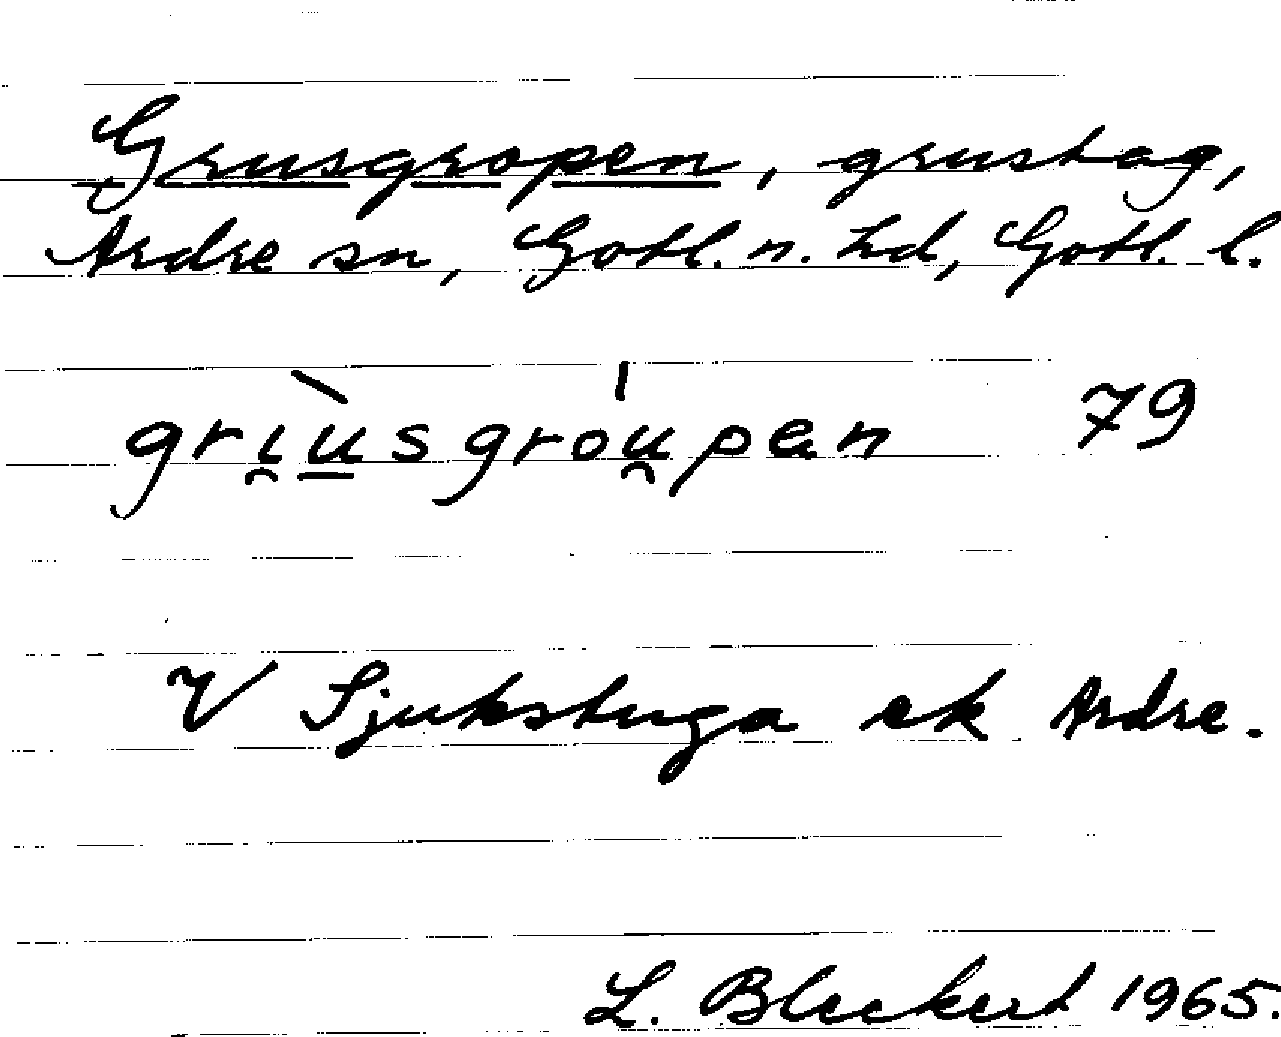 Grusgropen, grustag,
Ardre sn, Gotl. n. hd, Gotl. l.
grı̯ùsgròu̯pen 79
V Sjukstuga ek Ardre.
L. Bleckert 1965.